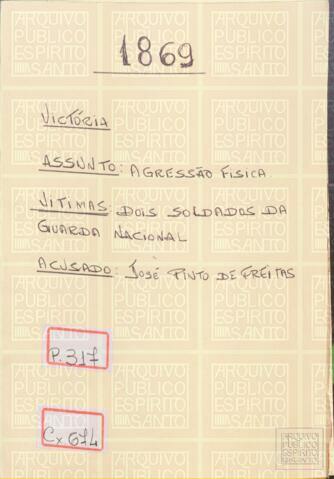 1869
VICTÓRIA
ASSUNTO: AGRESSÃO FISICA
VÍTIMAS: DOIS SOLDADOS DA
GUARDA NACIONAL
ACUSADO: JOSÉ PINTO DE FREITAS
P.317
Cx 674
ARQUIVO
PÚBLICO
ESPÍRITO
SANTO